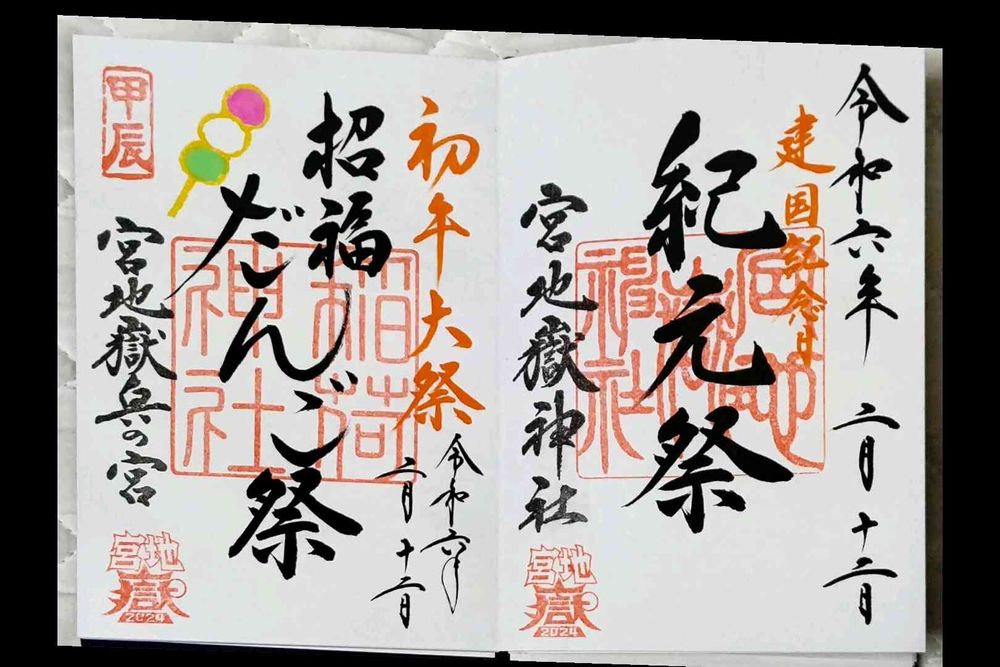 令和六年 二月 十二日
建国紀念日
紀元祭
宮地嶽神社
宮地嶽神社
宮地
嶽
2024
初午大祭
令和六年
二月 十二日
招福
だんご祭
稲荷神社
甲辰
宮地嶽奥の宮
宮地
嶽
2024